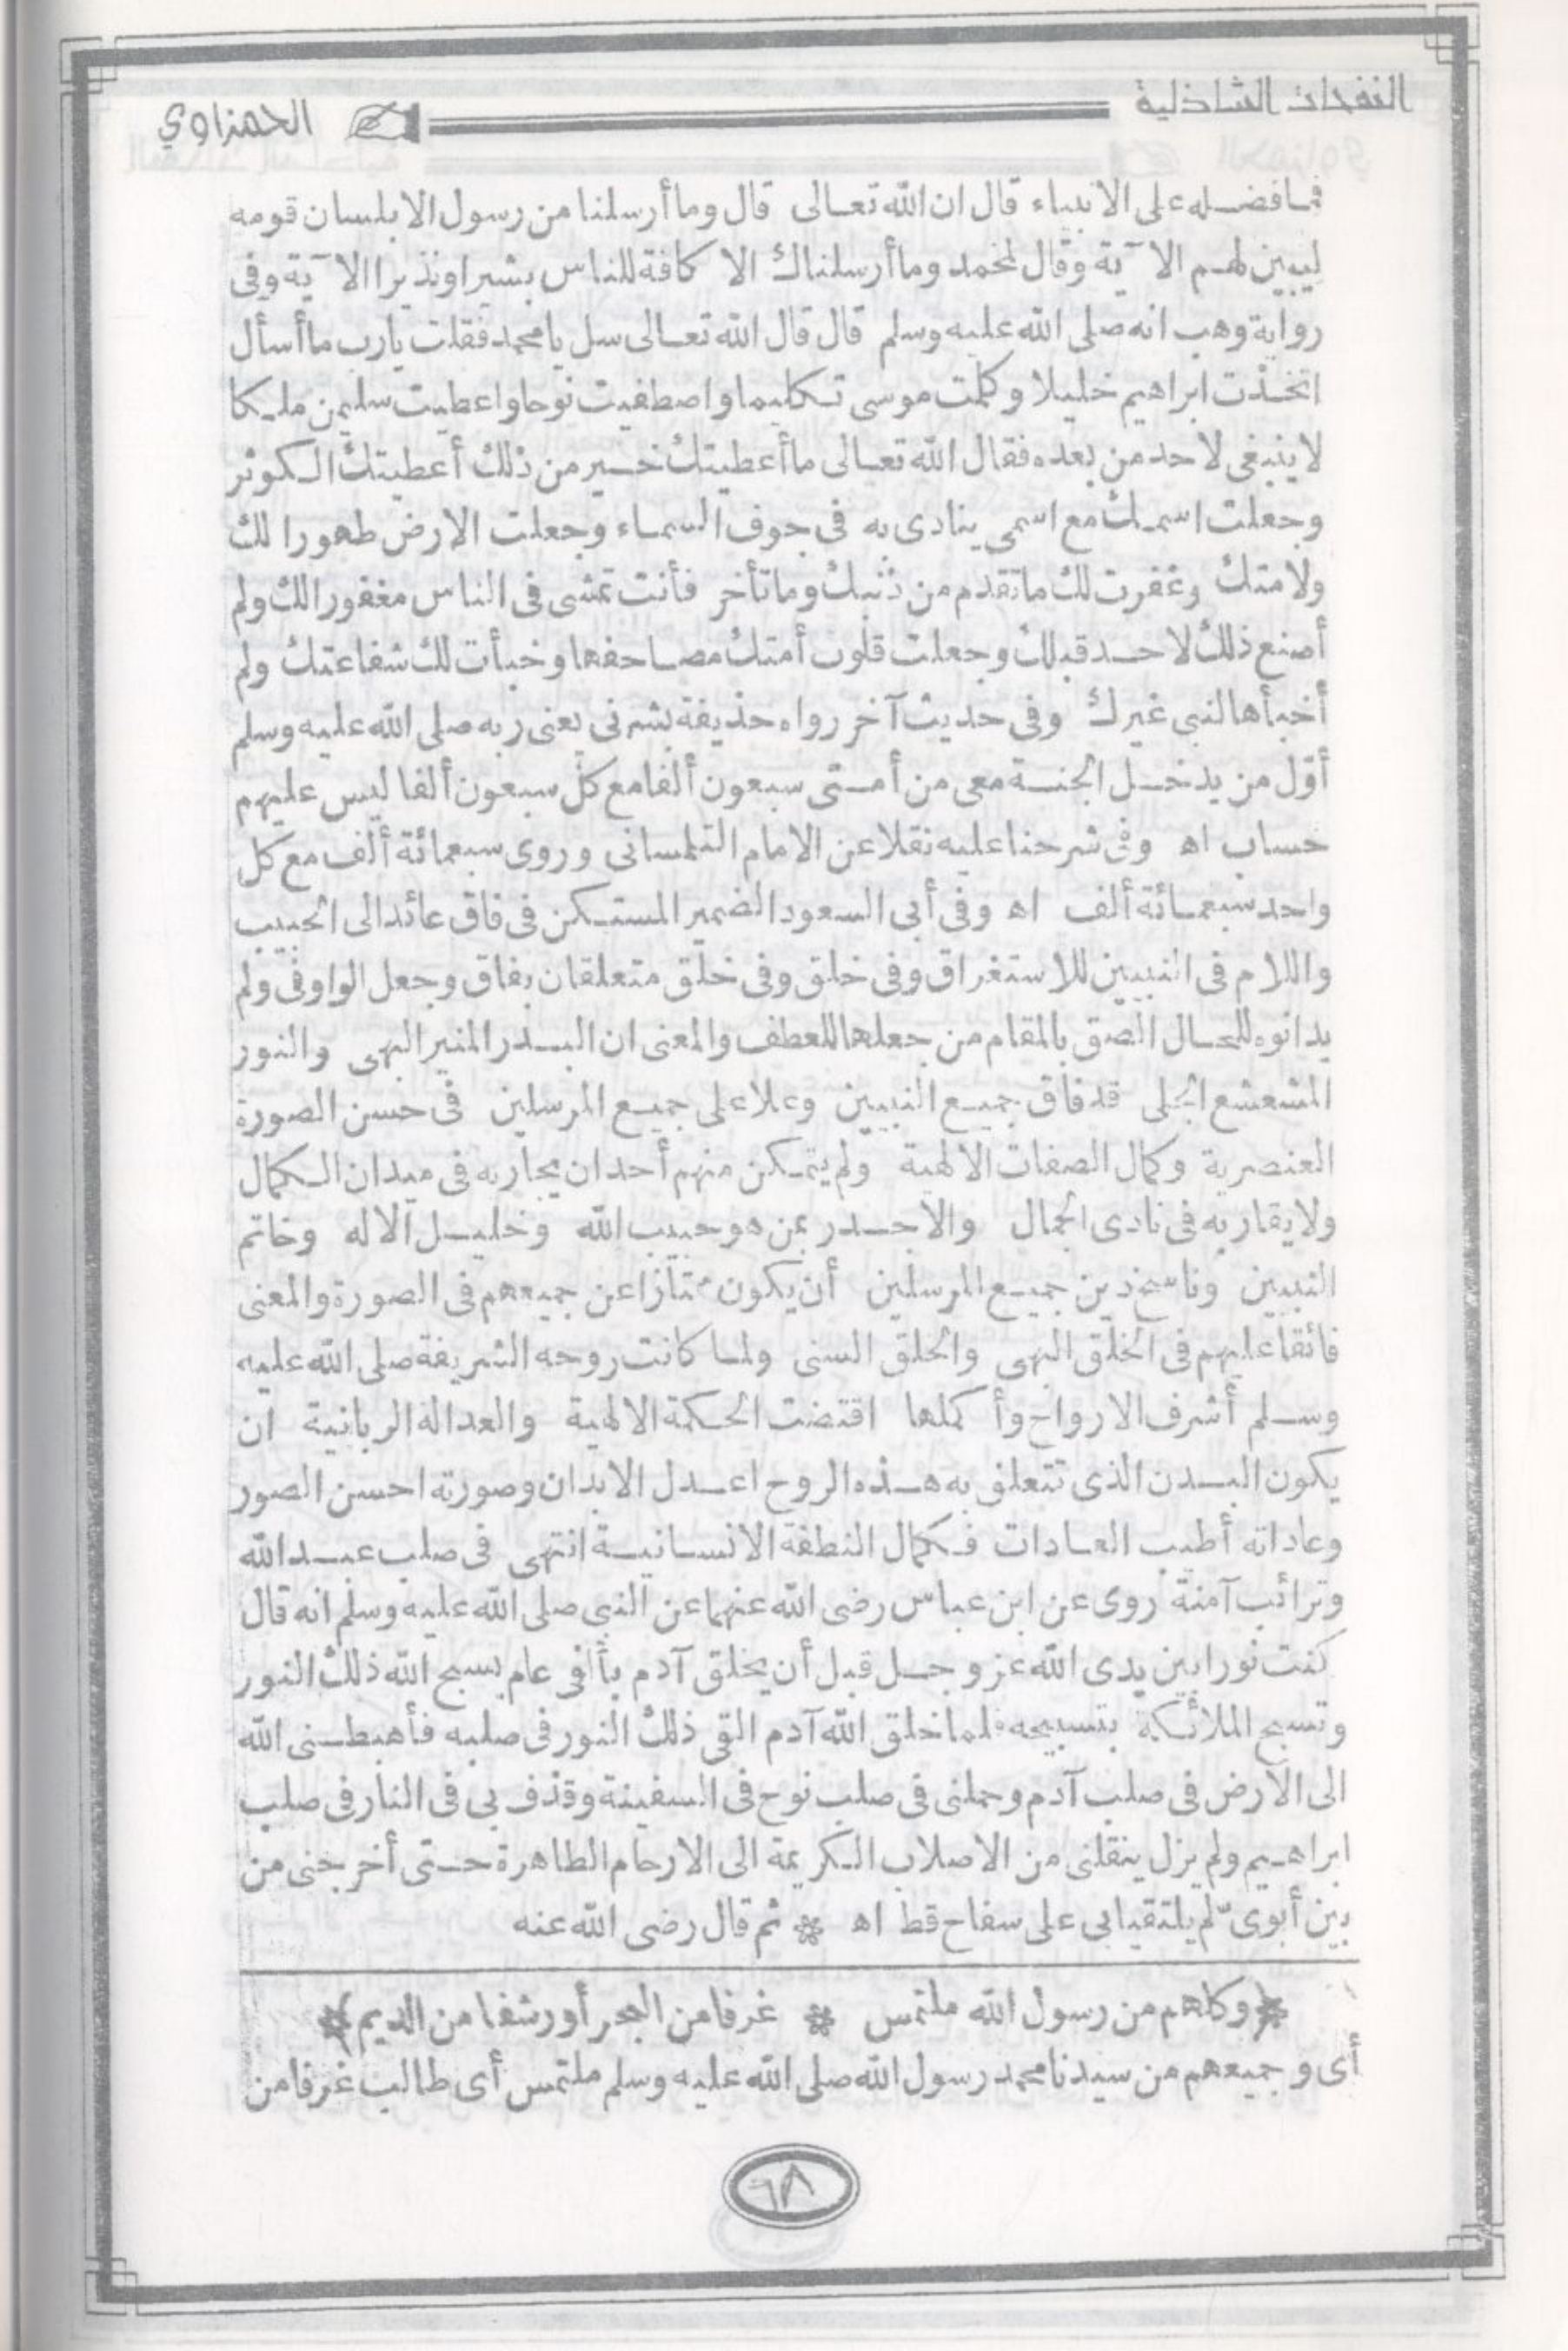 النفحات الشاذلية
الحمزاوي
فما فضله على الانبياء قال ان الله تعالى قال وما أرسلنا من رسول الا بلسان قومه
ليبين لهم الآية وقال لمحمد وما أرسلناك الا كافة للناس بشيرا ونذيرا الآية وفى
رواية وهب انه صلى الله عليه وسلم قال قال الله تعالى سل يا محمد فقلت يارب ما أسأل
اتخذت ابراهيم خليلا وكلمت موسى تكليما واصطفيت نوحا واعطيت سليمن ملكا
لا ينبغى لاحد من بعده فقال الله تعالى ما أعطيتك خير من ذلك أعطيتك الكوثر
وجعلت اسمك مع اسمى ينادى به فى جوف السماء وجعلت الارض طهورا لك
ولامتك وغفرت لك ما تقدم من ذنبك وما تأخر فأنت تمشى فى الناس مغفورا لك ولم
أصنع ذلك لاحد قبلك وجعلت قلوب أمتك مصاحفها وخبأت لك شفاعتك ولم
أخبأها لنبى غيرك وفى حديث آخر رواه حذيفة بشرنى يعنى ربه صلى الله عليه وسلم
أول من يدخل الجنة معى من أمتى سبعون ألفا مع كل سبعون ألفا ليس عليهم
حساب اه وفى شرحنا عليه نقلا عن الامام التلمسانى وروى سبعمائة ألف مع كل
واحد سبعمائة ألف اه وفى أبى السعود الضمير المستكن فى فاق عائد الى الحبيب
واللام فى النبيين للاستغراق وفى خلق وفى خلق متعلقان بفاق وجعل الواو فى ولم
يدانوه للحال الصق بالمقام من جعلها للعطف والمعنى ان البدر المنير البهى والنور
المشعشع الجلى قد فاق جميع النبيين وعلا على جميع المرسلين فى حسن الصورة
العنصرية وكمال الصفات الالهية ولم يتمكن منهم أحد ان يجاربه فى ميدان الكمال
ولا يقاربه فى نادى الجمال والاجدر بمن هو حبيب الله وخليل الاله وخاتم
النبيين وناسخ دين جميع المرسلين أن يكون ممتازا عن جميعهم فى الصورة والمعنى
فائقا عليهم فى الخلق البهى والخلق السنى ولما كانت روحه الشريفة صلى الله عليه
وسلم أشرف الارواح وأكملها اقتضت الحكمة الالهية والعدالة الربانية ان
يكون البدن الذى تتعلق به هذه الروح اعدل الابدان وصورته احسن الصور
وعاداته أطيب العادات فكمال النطفة الانسانية انتهى فى صلب عبد الله
وترائب آمنة روى عن ابن عباس رضى الله عنهما عن النبى صلى الله عليه وسلم انه قال
كنت نورا بين يدى الله عز وجل قبل أن يخلق آدم بألفى عام يسبح الله ذلك النور
وتسبح الملائكة بتسبيحه فلما خلق الله آدم القى ذلك النور فى صلبه فأهبطنى الله
الى الارض فى صلب آدم وحملنى فى صلب نوح فى السفينة وقذف بى فى النار فى صلب
ابراهيم ولم يزل ينقلنى من الاصلاب الكريمة الى الارحام الطاهرة حتى أخرجنى من
بين أبوىّ لم يلتقيا بى على سفاح قط اه * ثم قال رضى الله عنه
*(وكلهم من رسول الله ملتمس * غرفا من البحر أو رشفا من الديم)*
أى وجميعهم من سيدنا محمد رسول الله صلى الله عليه وسلم ملتمس أى طالب غرفا من
٦٨